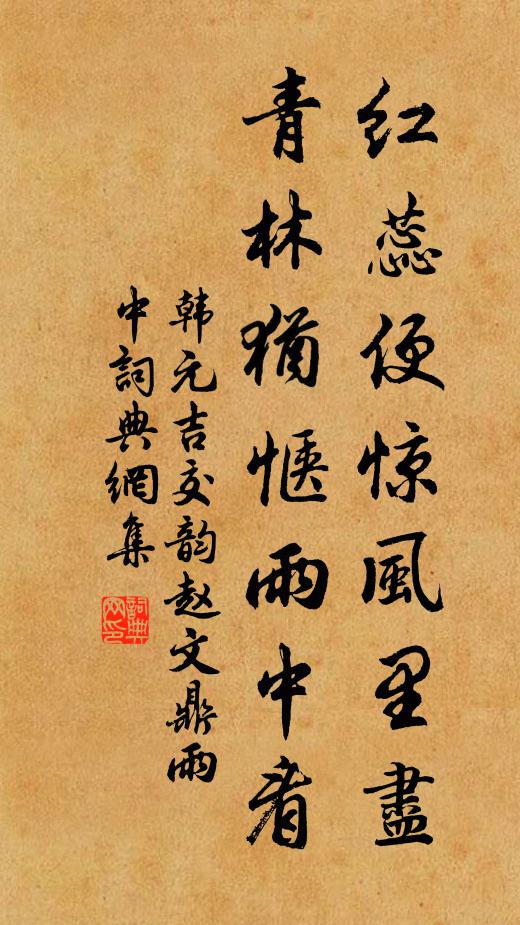 红蕊便惊風里盡
青林猶惬雨中看
韩元吉次韵赵文鼎雨
中詞典網集
詞典
网印